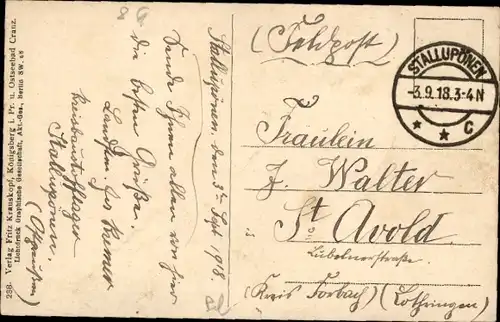 288. Verlag Fritz Krauskopf, Königsberg i. Pr. u. Ostseebad Cranz.
Lichtdruck Graphische Gesellschaft, Akt.-Ges., Berlin SW. 68
Stallupönen, den 3ten Sept 1918.
Sende Ihnen allen von hier
die besten Grüße.
Landstm.
Kreisbaustofflager
Stallupönen.
(Ostpreußen)
(Feldpost)
STALLUPÖNEN
-3.9.18.3-4N
* * C
Fräulein
J. Walter
St Avold.
Lübelnerstraße.
(Kreis Forbach) (Lothringen)